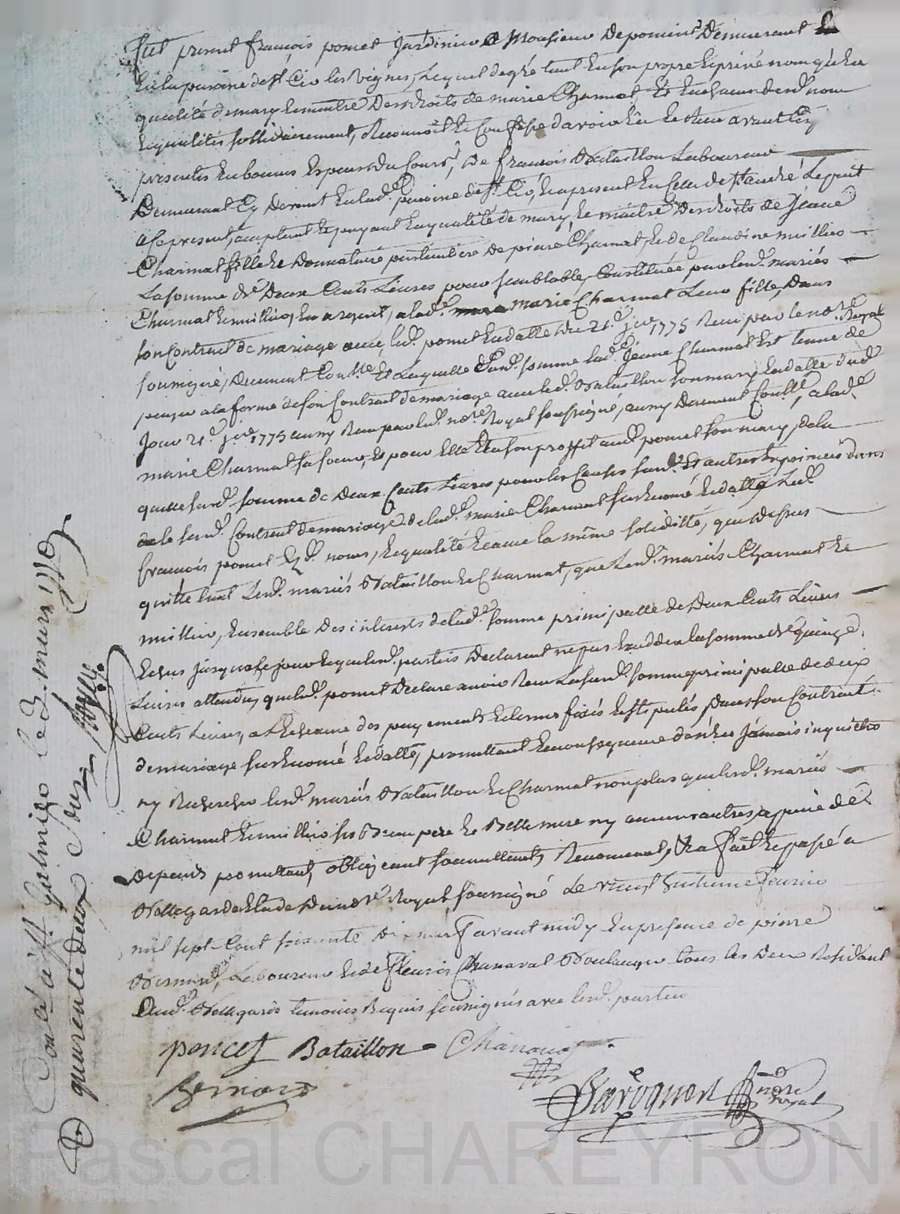 fut present françois poncet Jardinier de Monsieur De pomiers Demeurant
En la paroisse de St Cir les Vignes, Lequel de gré tant En son propre Et privé nom qu'En
qualité de mary Et maitre Des droits de marie Charmat Et En chacun desd. noms
Et qualités sollidairement, Reconnoit Et Confesse d'avoir Eu Et Reçu avant Ces
presentes En bonnes Especes du Cours, De françois Bataillon Laboureur
Demeurant Cy Devant En lad. paroisse de St Cir, Et a present En Celle de St andré Le puit
a Ce present, acceptant Et payant En qualité de mary Et maitre Des droits de Jeane
Charmat fille Et Donnataire particuliere de pierre Charmat Et de Claudine millier
La somme de Deux Cents Livres pour semblable Constituée par lesd. mariés
Charmat Et millier, En argent, a lad. marie Charmat Leur fille, Dans
son Contrat de mariage avec led. poncet En datte du 21e jer 1775 Reçu par le nore Royal
soussigné, Deument Conllé Et Laquelle d. somme lad. Jeane Charmat Est tenue de
payer a la forme de son Contrat de mariage avec led. Bataillon son mary En datte dud.
Jour 21e jer 1775 aussy Reçu par led. nore Royal soussigné, aussy Deument Conllé, a lad.
marie Charmat sa soeur, Et pour Elle Et a son proffit aud. poncet son mary, de la
quelle susd. somme de Deux Cents Livres pour les Causes susd. Et autres Exprimées dans
le susd. Contrat de mariage de lad. marie Charmat sus Enoncé Et datté Led.
francois poncet Esd. noms, Et qualité Et avec la même soliditté, que Dessus
quitte tant Lesd. mariés Bataillon Et Charmat, que Lesd. mariés Charmat Et
millier, Ensemble Des interets de lad. somme principalle de Deux Cents Livres
Echus jusqu'a Ce jour Lesquelles parties Declarent ne pas Exceder la somme de quinze
Livres attendu que led. poncet Declare avoir Reçu La susd. somme principalle de deux
Cents Livres, a L'Echeance des payements Et termes fixés Et stipulés Dans son Contrat
de mariage sus Enoncé Et datté, promettant En Consequence de n'En Jamais inquietter
ny Rechercher lesd. mariés Bataillon Et Charmat non plus que lesd. mariés
Charmat Et millier ses Beau pere Et Belle mere ny aucuns autres, a peine de
Depens promettant, obligeant, soumettant, Renonçant, &a fait Et passé a
Bellegarde Etude Du nore Royal soussigné Le vingt huitieme fevrier
mil sept Cent soixante Dix neuf avant midy En presence de pierre
Bernard, Laboureur Et de fleuris Chanaval Boulanger tous les Deux Residant
aud. Bellegarde temoins Requis soussignés avec lesd. parties
poncet Bataillon Chanaval
Bernard
Baroquon nore royal
Conlé a St Galmier le 2 mars 1779
R quarente deux s. dix d.
Pascal CHAREYRON